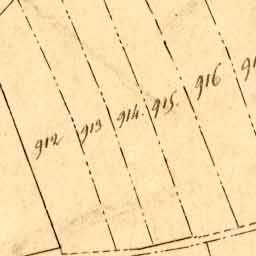 912
913
914.
915.
916